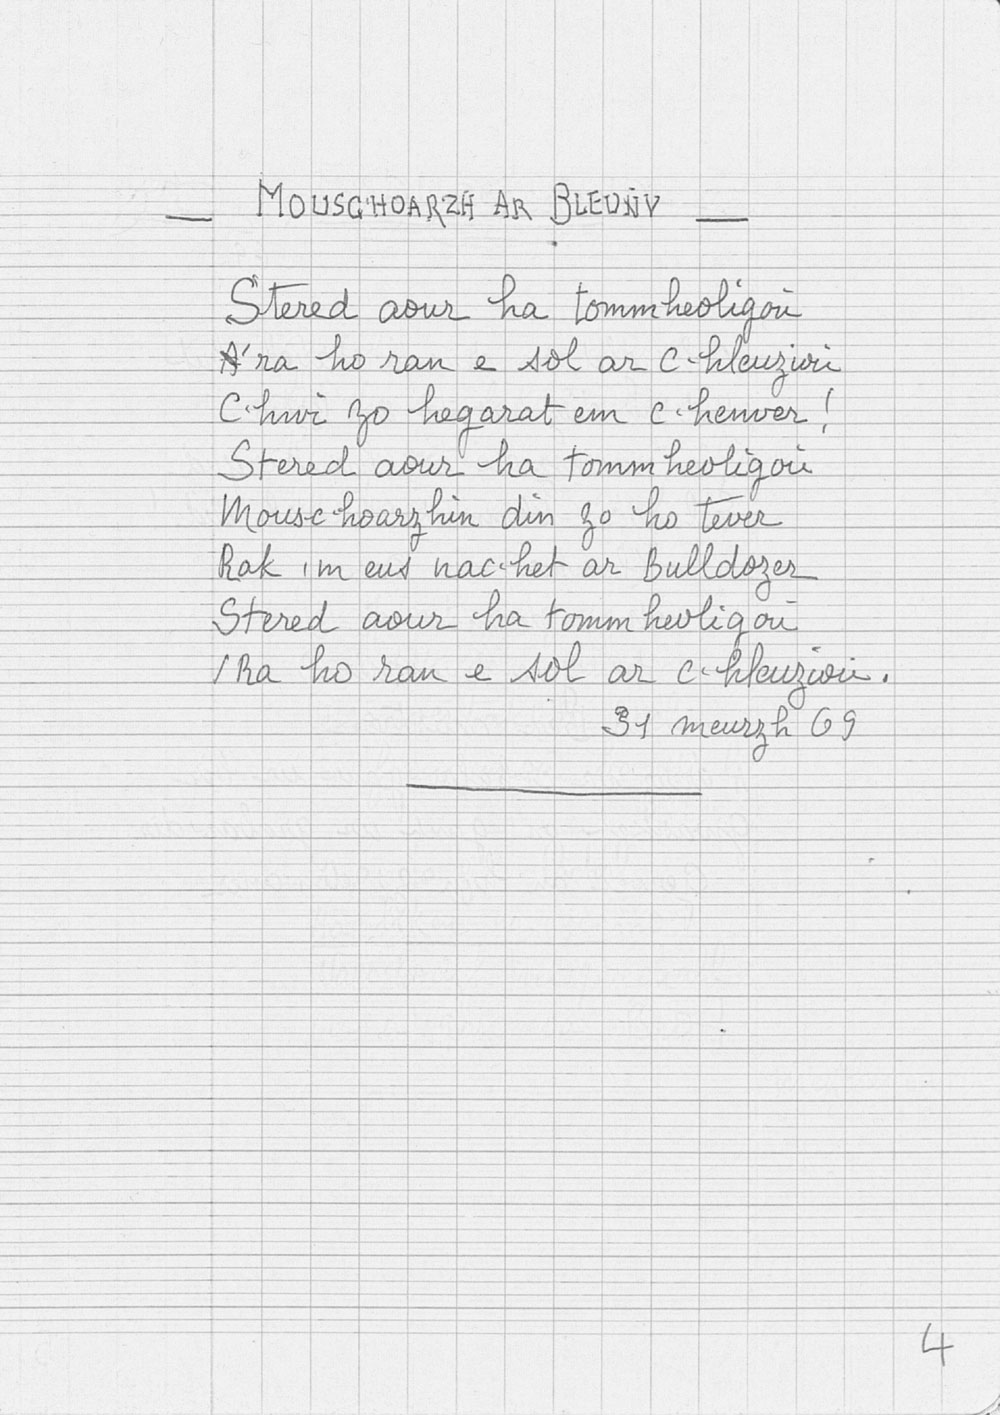 — MOUSC'HOARZH AR BLEUÑV —
Stered aour ha tommheoligoù
A'ra ho ran e sol ar c'hleuzioù
C'hwi zo hegarat em c'heñver !
Stered aour ha tommheoligoù
Mousc'hoarzhin din zo ho tever
Rak 'm eus nac'het ar Bulldozer
Stered aour ha tommheoligoù
'Ra ho ran e sol ar c'hleuzioù.
31 meurzh 69
4